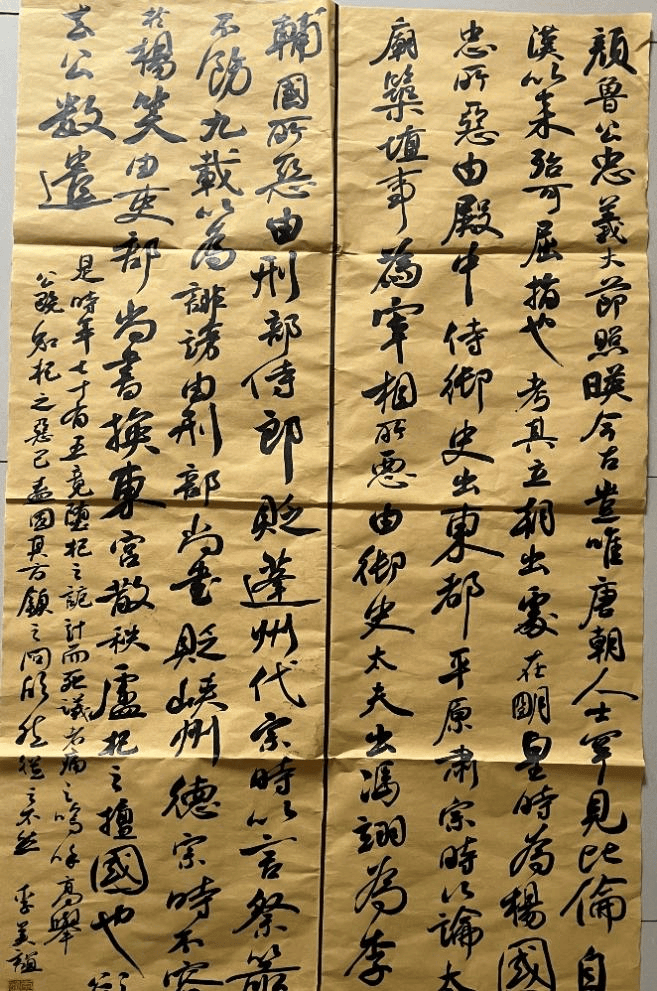 顔魯公忠義大節照暎今古豈唯唐朝人士罕見比倫自
漢以來殆可屈指也考其立朝出處在明皇時為楊國
忠所惡由殿中侍御史出東都平原肅宗時以論太
廟築壇事為宰相所惡由御史太夫出馮翊為李
輔國所惡由刑部侍郎貶蓬州代宗時以言祭器
不飭九載以為誹謗由刑部尚書貶峽州德宗時不容
於楊笑由吏部尚書換東宮散秩盧杞之擅國也欲
去公數遣
是時年七十有五竟墮杞之詭計而死議者痛之嗚呼高舉
公既知杞之惡已盍因其方鎮之問欣然從之不然